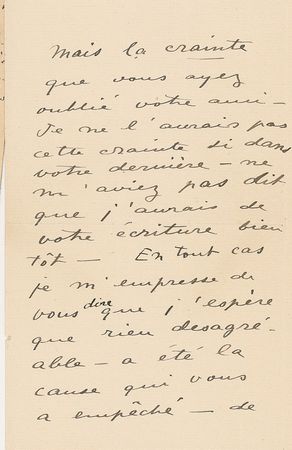 Mais la crainte
que vous ayez
oublié votre ami –
Je ne l'aurais pas
cette crainte si dans
votre dernière – ne
m'aviez pas dit
que j'aurais de
votre écriture bien
tôt – En tout cas
je m'empresse de
vous dire que j'espère
que rien desagré-
able – a été la
cause qui vous
a empêché – de